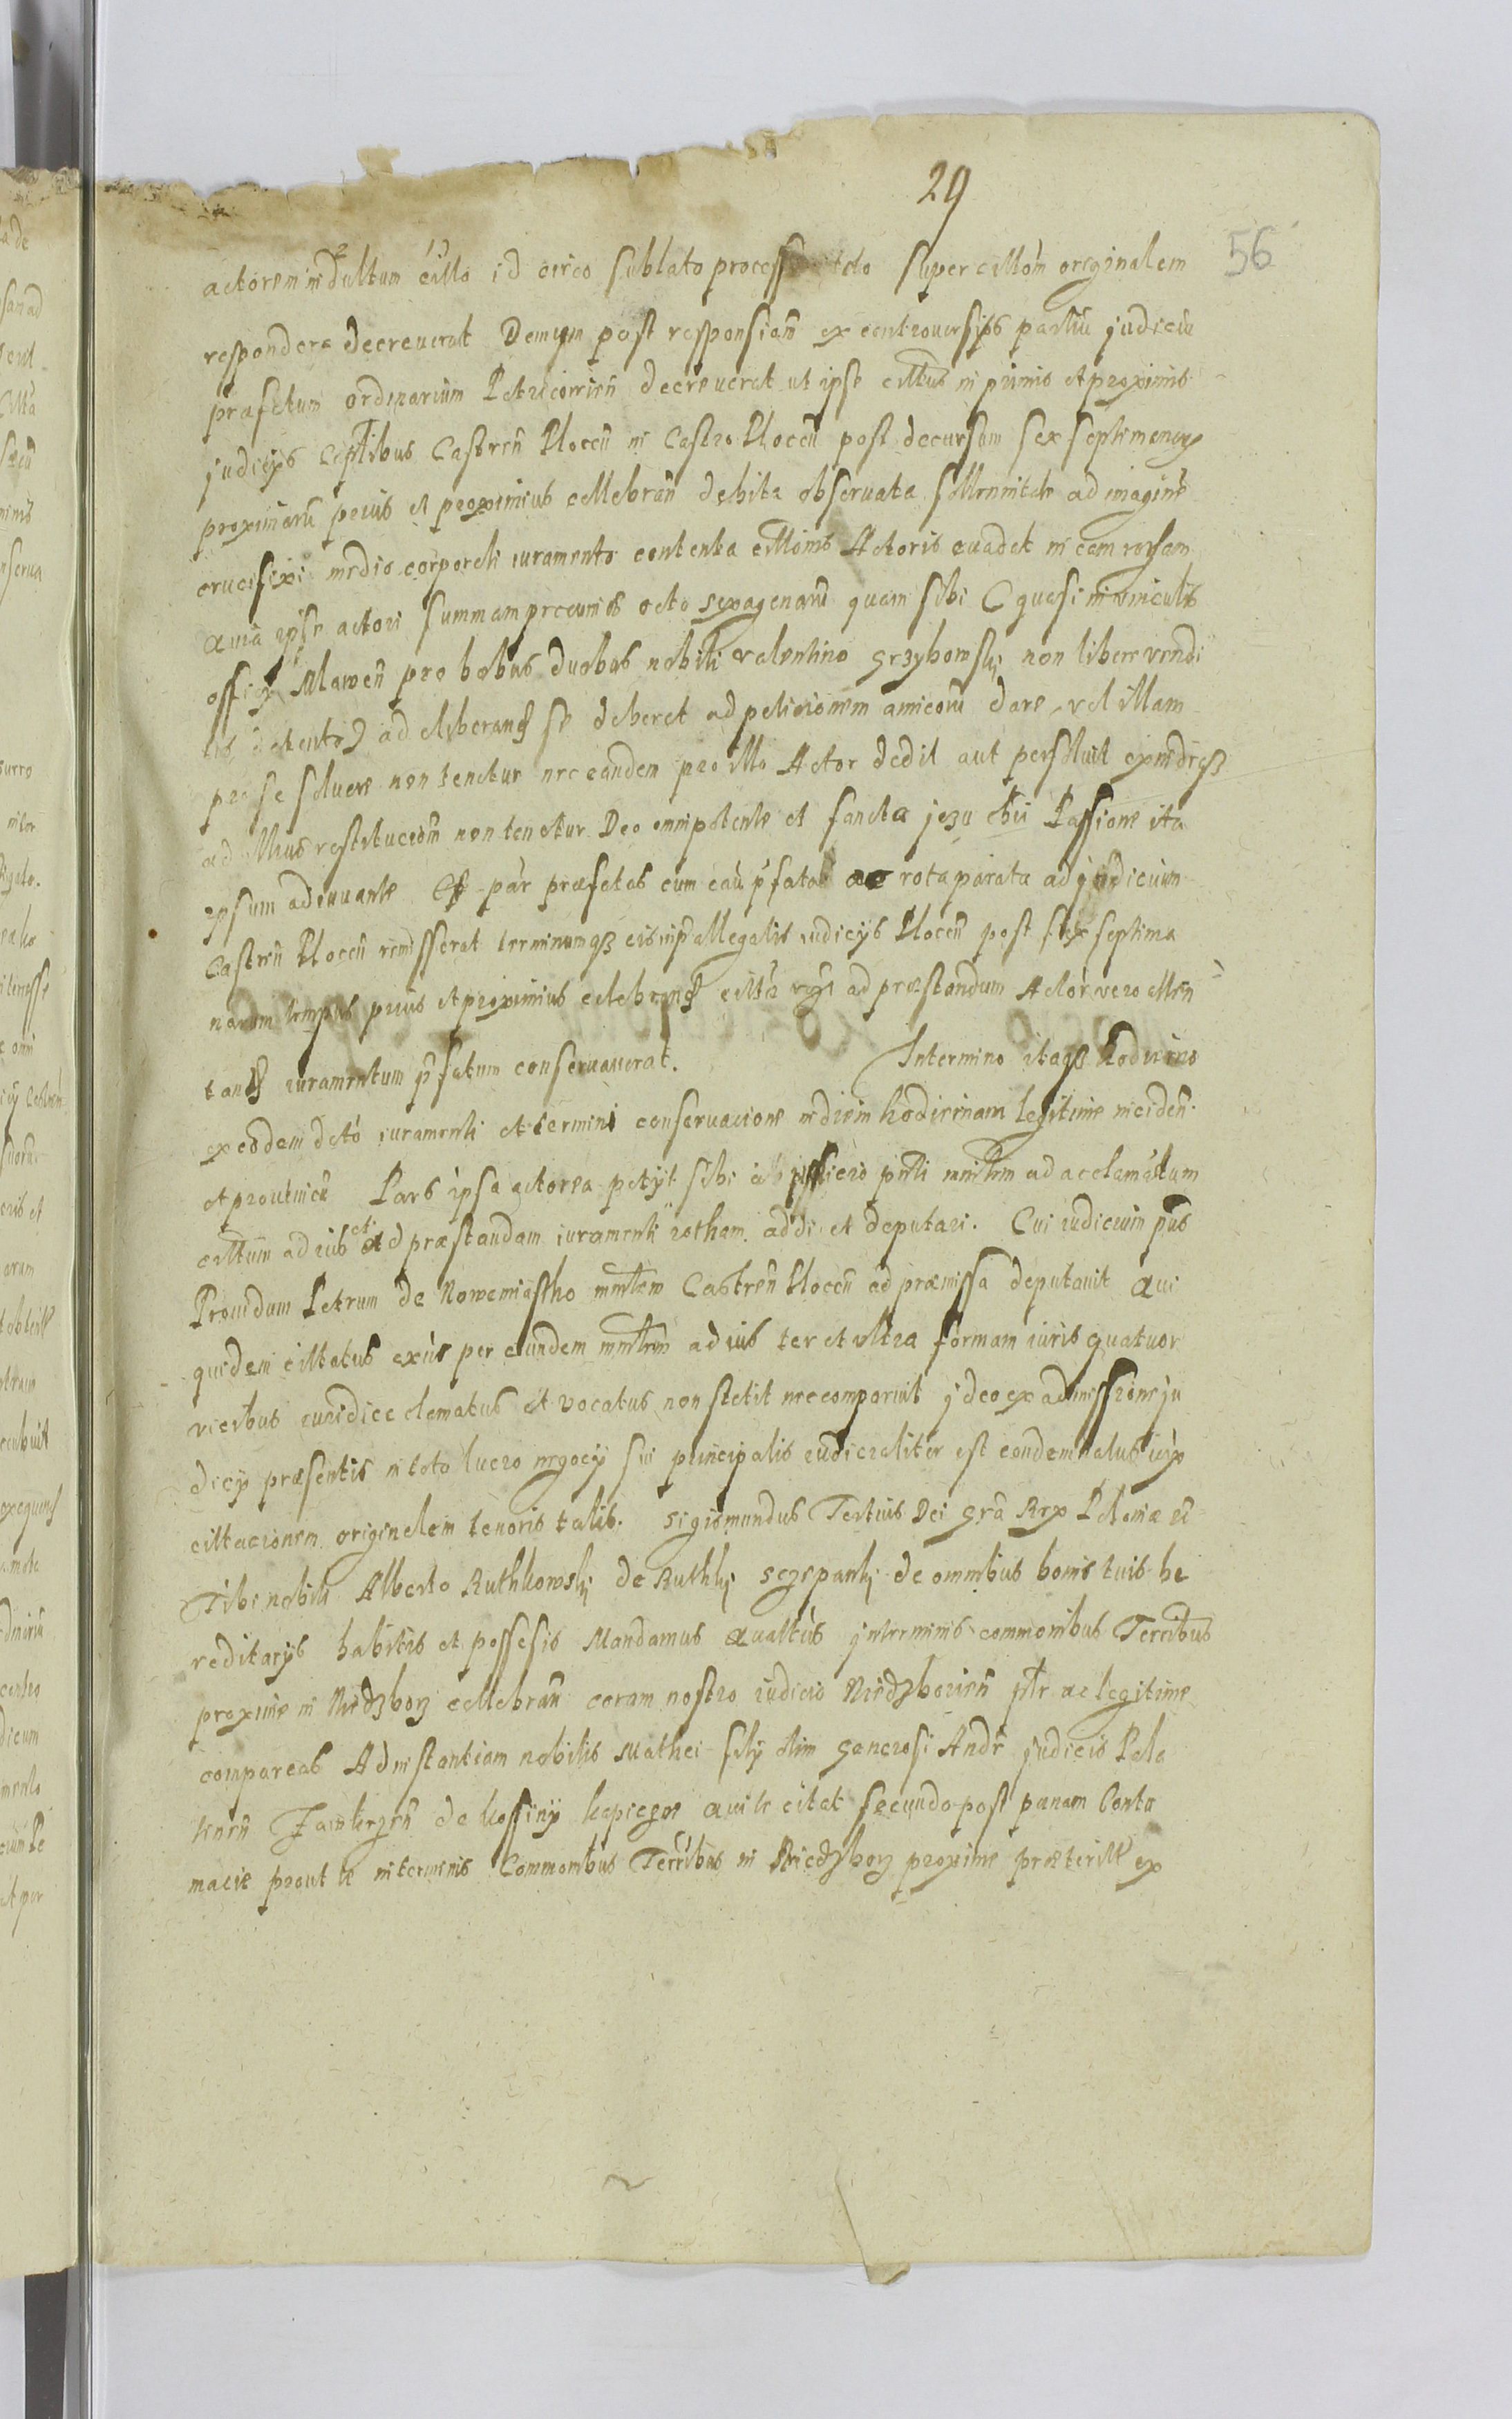 29
56
actorem indultum cillo id circo sublato processu super cittõm originalem
respondere decreverat Demum post responsiam̃ ex controversijs partiũ judiciũ
præfctum ordinarium Petricovien̄ decreverat ut ipse cittus in primis et proximis
judicijs Castren̄ Plocen̄ in Castro Plocen̄ post decursum sex septimanarũ
proximarũ prius et proximius cellebran̄ debita observata sollennitate ad imaginẽ
crucifixi medio corporeli iuramento contenta cittõnis Actoris evadet in eam rotham
Quia ipse actori summam pecuniæ octo sexagenarũ quam sibi C quasi in vinculis
offi Mlawen̄ pro bobus duobus nobili Valentino Grzybowskj non libere vendi
tis detento ad eliberand se deberet ad peticionem amicorũ dare, vel illam
pro se solvere non tenetur nec eandem pro illo Actor dedit aut persoluit
ad illius restitucionẽ non tenetur Deo omnipotente et sancta jezu chri Passione ita
ipsum adiuvante Et par præfctas cum caũ p̃fatas ac rota parata ad judicium
Castren̄ Plocen̄ remisserat terminumqȝ eis in p̃allegatis iudicijs Plocen̄ post sex septima
narum tempus prius et proximius celebrand citta ad præstandum Actor vero
tand iuramentum p̃fatum conservaverat. In termino itaqȝ hodierno
ex eodem dcto iuramenti et termini conservacione in diem hodiernam legitime inciden̄
et provenien̄ Pars ipsa actorea petijt sibi ab officio pñti mñlem ad acclamãdum
cittum ad ius et ad præstandam iuramenti rotham addi et deputari. Cui iudicium pñs
Providum Petrum de Nowemiastho mñlem Castren̄ Plocen̄ ad præmissa deputavit Qui
quidem cittatus exiis per eundem mñlem ad ius ter et ultra formam iuris quatuor
vicibus iuridice clamatus et vocatus non stetit nec comparuit jdeo ex admissione ju
dicij præsentis in toto lucro negocij sui principalis iudicialiter est condemnatus iux
cittacionem originalem tenoris talis. Sigismundus Tertius Dei gr̃a Rex Poloniæ
Tibi nobili Alberto Ruthkowskj de Ruthkj Sczepankj de omnibus bonis tuis he
reditarijs habitis et possesis Mandamus Quatius jn terminis commonibus Terribus
proxime in Niedzborz cellebran̄ coram nostro iudicio Niedzborien̄ ptr ac legitime
compareas Ad instantiam nobilis Mathei filij olim generosi Andr̃ judicis Pala
tinen̄ Zawkrzen̄ de Kossiny kapiczne qui te citat secundo post pænam Contu
macie prout te in terminis Commonibus Terribus in Niedzborz proxime præterite ex